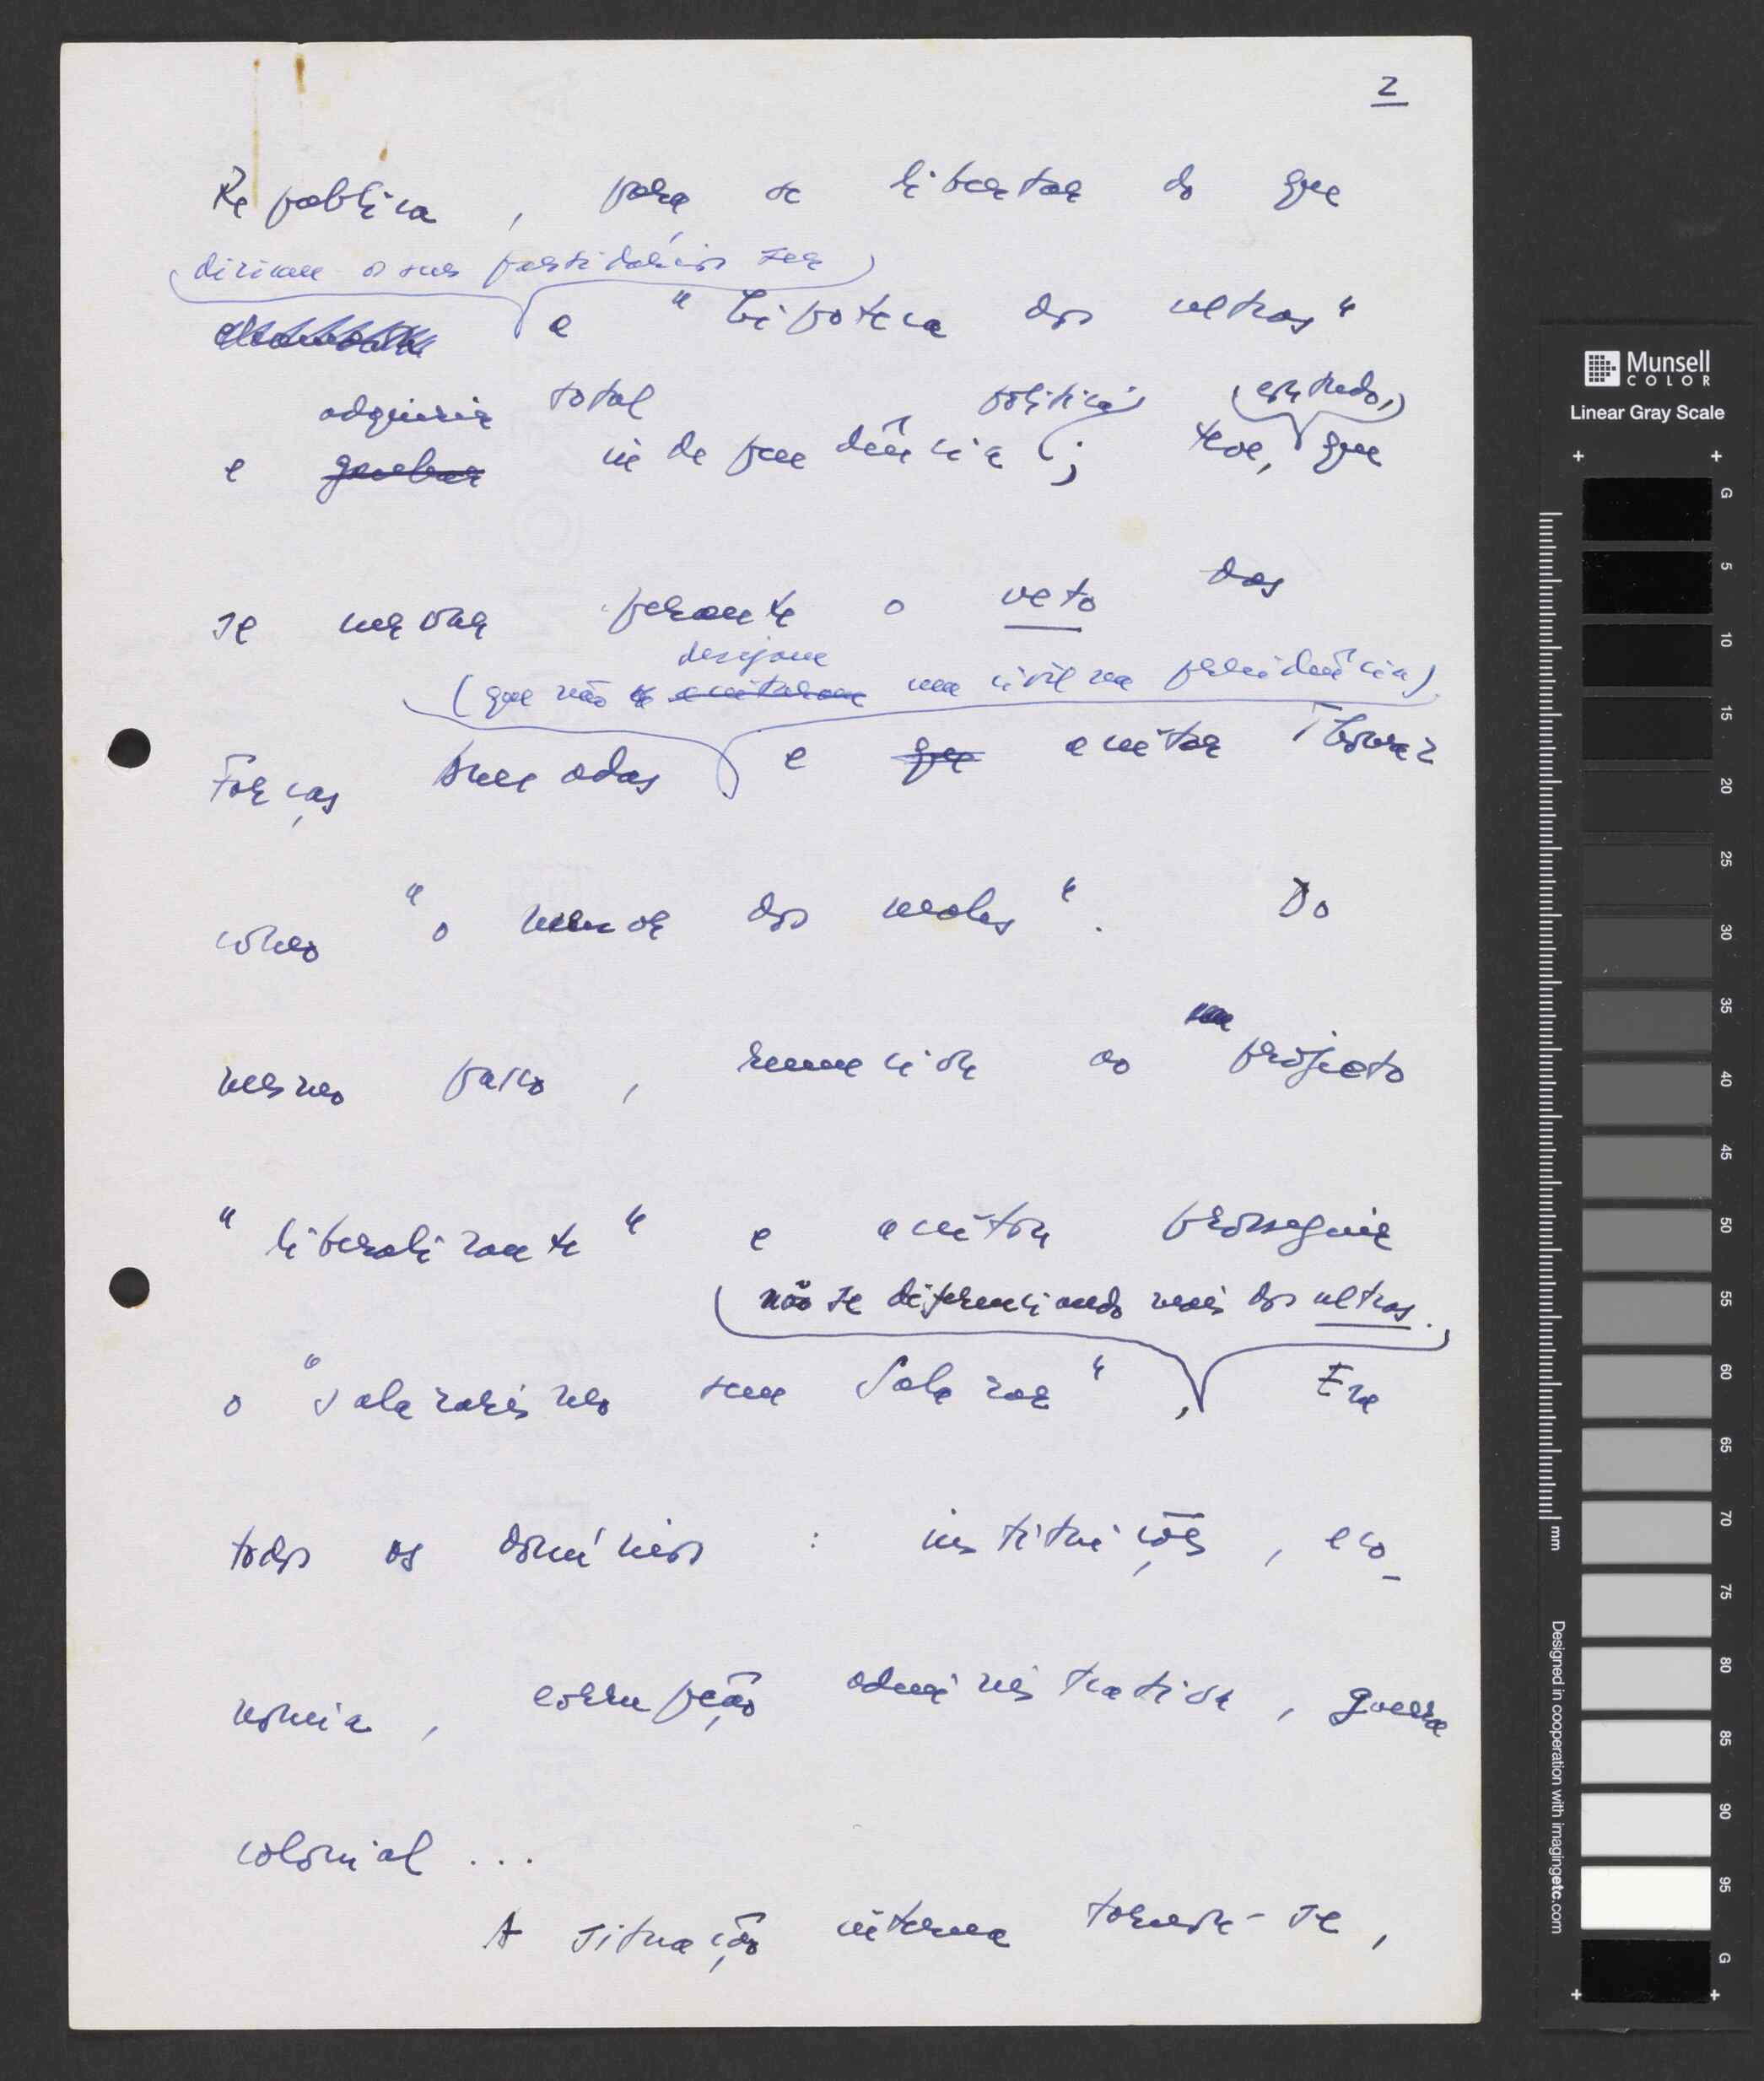 2
República, para se libertar do que
diziam os seus partidários ser
a "hipoteca dos ultras"
adquirir total política contudo,
e ganhar independência; teve, que
se curvar perante o veto das
desejam
(que não aceitaram um civil na presidência)
Forças Armadas e que aceitar Thomaz
como "o menor dos males". Do
mesmo passo, renunciou ao projecto
"liberalizante" e aceitou prosseguir
não se diferenciando mais dos ultras.
o "salazarismo sem Salazar", Em
todos os domínios: instituições, eco-
nomia, corrupção administrativa, guerra
colonial...
A situação interna tornou-se,
Munsell
COLOR
Linear Gray Scale
G
5
10
15
20
25
30
35
40
45
50
55
60
65
70
75
80
85
90
95
G
mm
Designed in cooperation with imagingetc.com